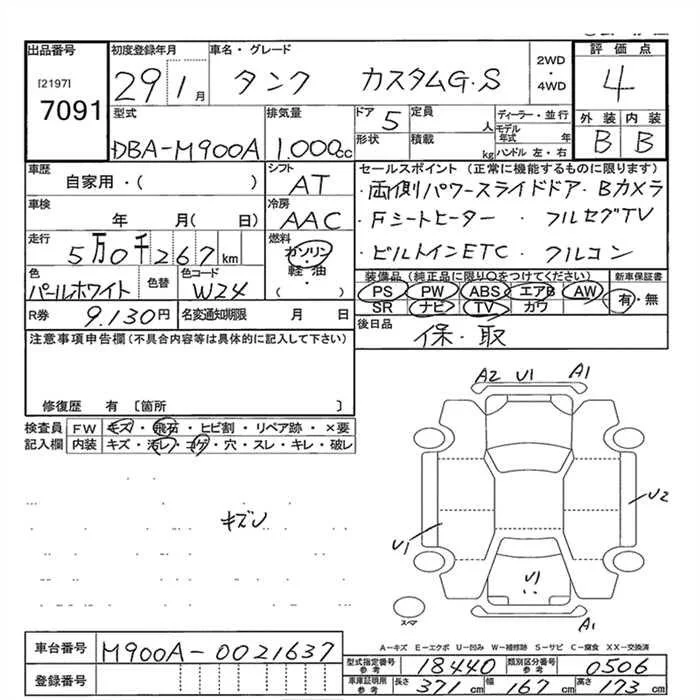 出品番号
[2197]
7091
初度登録年月
29 1月
車名・グレード
タンク カスタムG・S
2WD
・
4WD
評価点
4
型式
DBA-M900A
排気量
1.000cc
ドア 5
定員 人
形状
積載 kg
ディーラー・並行
モデル年式 年
ハンドル 左・右
外装 内装
B B
車歴
自家用・( )
シフト
AT
車検
年 月( 日)
冷房
AAC
走行
5万0千267km
燃料
ガソリン
・
軽・油
( )
色
パールホワイト
色替
色コード
W24
R券 9.130円
名変通知期限 月 日
セールスポイント (正常に機能するものに限ります)
・両側パワースライドドア・Bカメラ
・Fシートヒーター ・フルセグTV
・ビルトインETC ・フルコン
装備品(純正品に限り○をつけてください)
PS PW ABS エアB AW
SR ナビ TV カワ
新車保証書
有・無
後日品
保・取
注意事項申告欄(不具合内容等は具体的に記入して下さい)
修復歴 有 [箇所 ]
検査員 FW キズ・飛石・ヒビ割・リペア跡・×要
記入欄 内装 キズ・汚レ・コゲ・穴・スレ・キレ・破レ
キズU
A2 U1 A1
U2
U1
U1
A1
スペア
A-キズ E-エクボ U-凹み W-補修跡 S-サビ C-腐食 XX-交換済
車台番号 M900A-0021637
登録番号
型式指定番号参考 18440 類別区分番号参考 0506
車庫証明用参考 長さ 371cm 幅 167cm 高さ 173cm